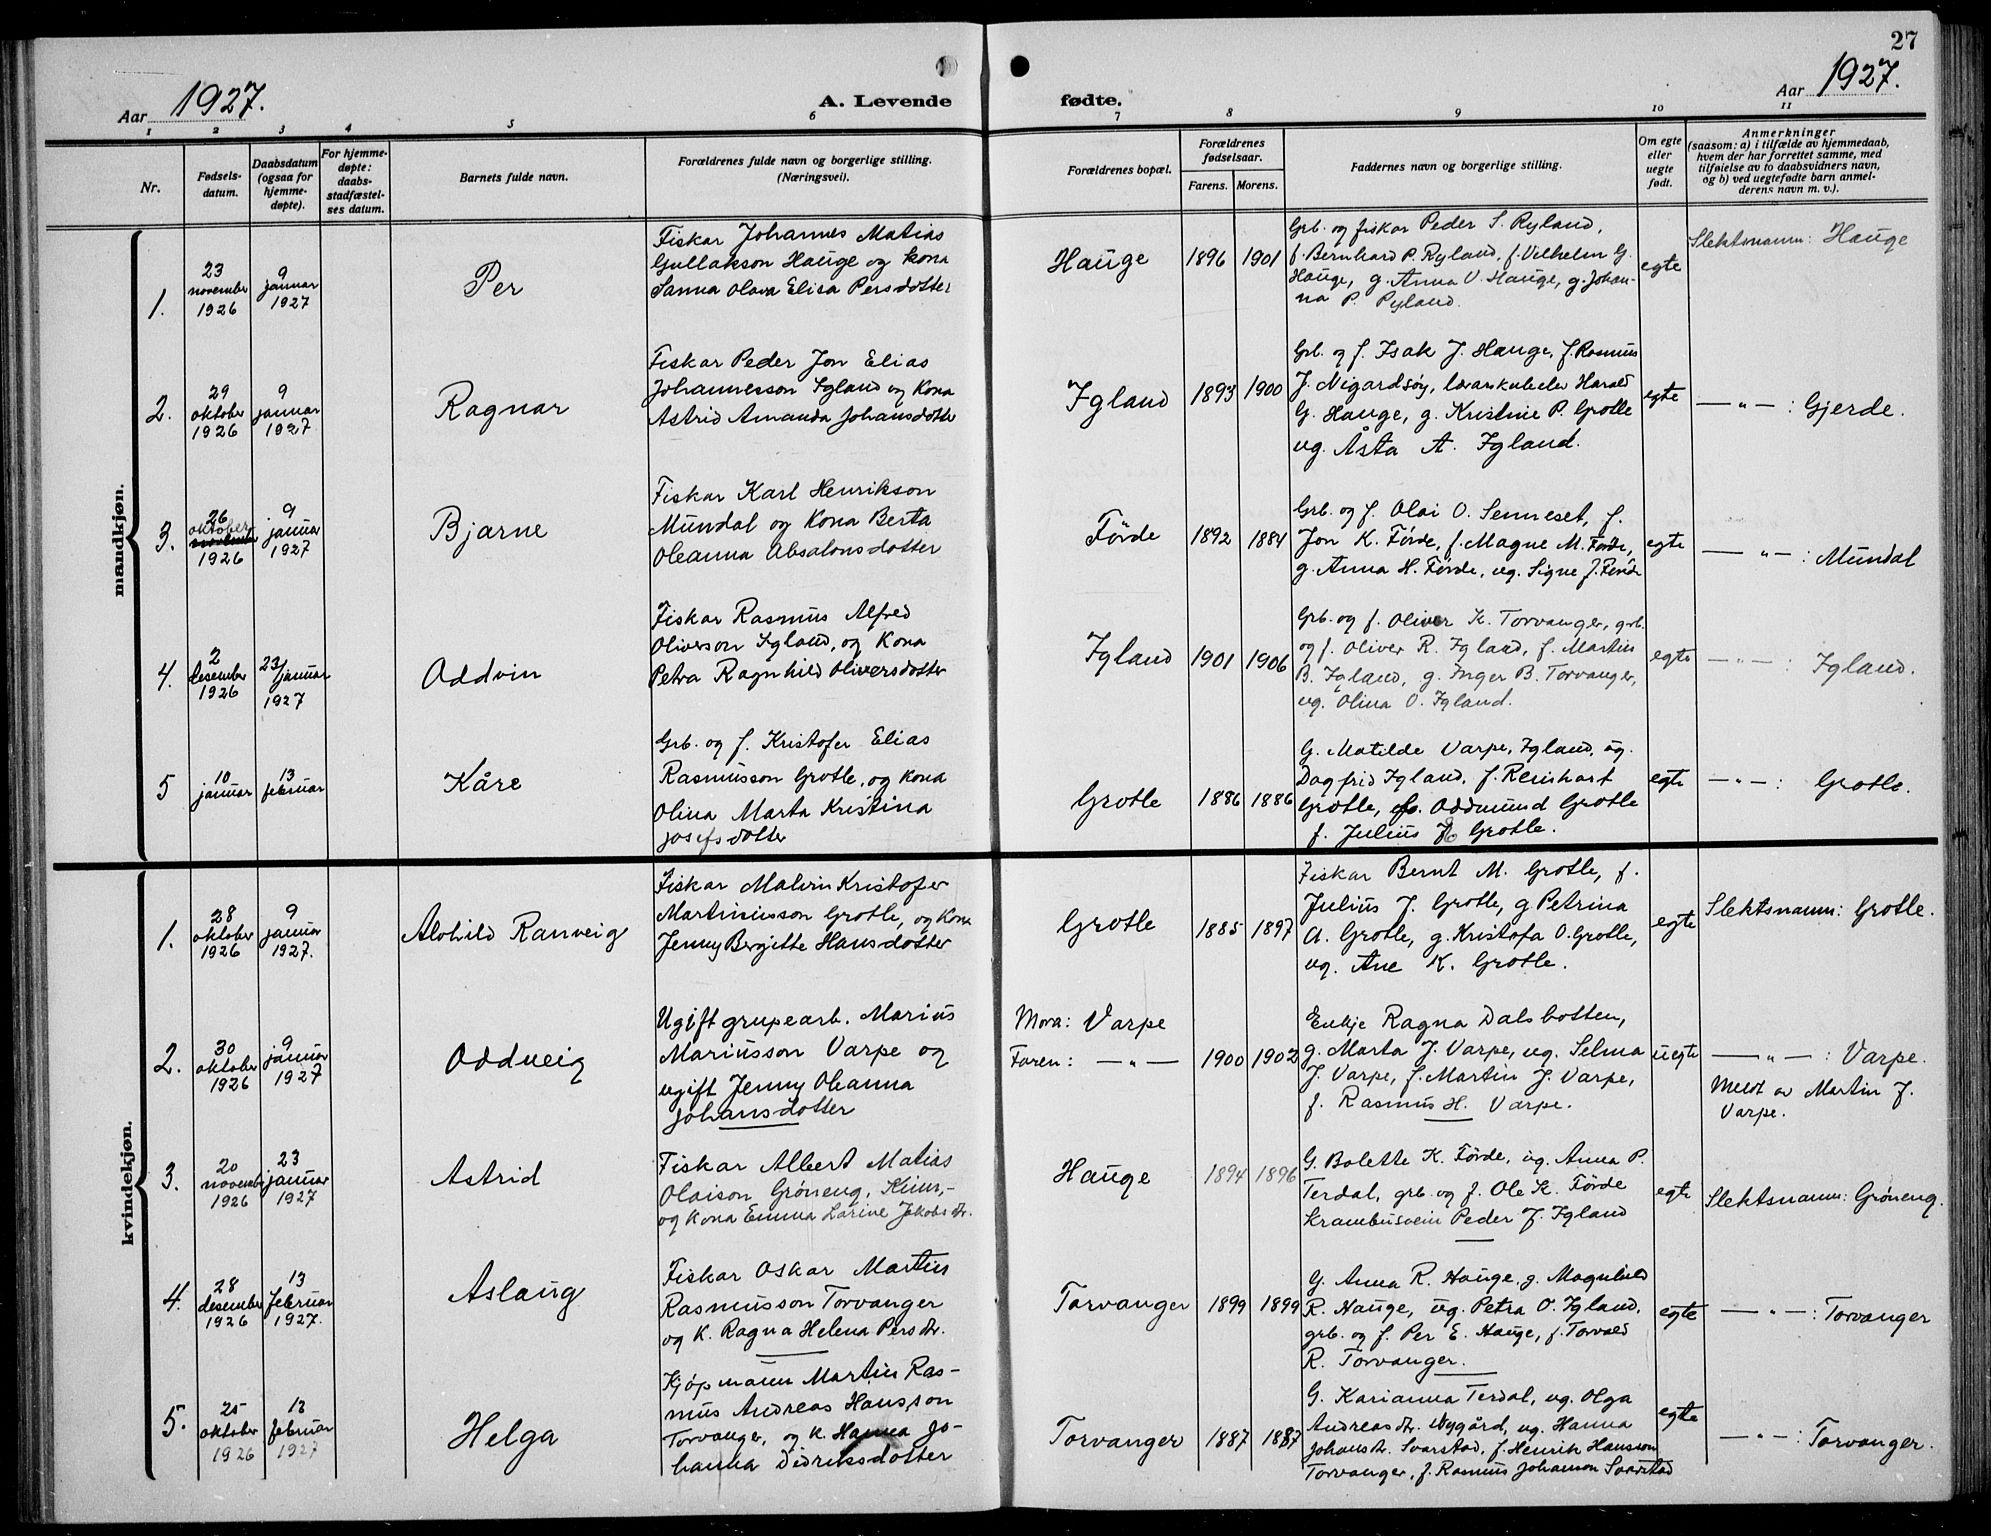 27
Aar 1927.
A. Levende fødte.
Aar 1927.
1 2 3 4 5 6 7 8 9 10 11
Nr.
Fødsels-
datum.
Daabsdatum
(ogsaa for
hjemme-
døpte).
For hjemme-
døpte:
daabs-
stadfæstel-
ses datum.
Barnets fulde navn.
Forældrenes fulde navn og borgerlige stilling.
(Næringsvei).
Forældrenes bopæl.
Forældrenes
fødselsaar.
Farens. Morens.
Faddernes navn og borgerlige stilling.
Om egte
eller
uegte
født.
Anmerkninger
(saasom: a) i tilfælde av hjemmedaab,
hvem der har forrettet samme, med
tilføielse av to daabsvidners navn,
og b) ved uegtefødte barn anmel-
derens navn m. v.).
mandkjøn.
1.
23
november
1926
9
januar
1927
Per
Fiskar Johannes Matias
Gullakson Hauge og kona
Sanna Olava Elisa Persdotter
Hauge
1896 1901
Grb. og fiskar Peder S. Ryland,
f. Bernhard P. Ryland, f. Vilhelm G.
Hauge, g. Anna O. Hauge, g. Johan-
na P. Ryland.
egte
Slektsnamn: Hauge
2.
29
oktober
1926
9
januar
1927
Ragnar
Fiskar Peder Jon Elias
Johannesson Igland og Kona
Astrid Amanda Johansdotter
Igland
1893 1900
Grb. og f. Isak J. Hauge, f. Rasmus
J. Nigardsøy, lærarskuleelev Harald
G. Hauge, g. Kristine P. Grotle
ug. Åsta A. Igland.
egte
— " — : Gjerde.
3.
26
oktober
november
1926
9
januar
1927
Bjarne
Fiskar Karl Henrikson
Mundal og Kona Berta
Oleanna Absalonsdotter
Førde
1892 1884
Grb. og f. Olai O. Senneset, f.
Jon K. Førde, f. Magne M. Førde,
g. Anna H. Førde, ug. Signe J. Førde
egte
— " — : Mundal
4.
2
desember
1926
23/januar
1927
Oddvin
Fiskar Rasmus Alfred
Oliverson Igland, og Kona
Petra Ragnhild Oliversdotter
Igland
1901 1906
Grb. og f. Oliver K. Torvanger, grb.
og f. Oliver R. Igland, f. Martin
B. Igland, g. Inger B. Torvanger,
ug. Olina O. Igland.
egte
— " — : Igland.
5
10
januar
13
februar
Kåre
Grb. og f. Kristofer Elias
Rasmusson Grotle, og kona
Olina Marta Kristina
Josefsdotter
Grotle
1886 1886
G. Matilde Varpe, Igland, ug.
Dagfrid Igland, f. Reinhart
Grotle, Oddmund Grotle
f. Julius Grotle.
egte
— " — : Grotle.
kvindekjøn.
1.
28
oktober
1926
9
januar
1927.
Alvhild Ranveig
Fiskar Malvin Kristofer
Martinusson Grotle, og Kona
Jenny Bergitte Hansdotter
Grotle
1885 1897
Fiskar Bernt M. Grotle, f.
Julius J. Grotle, g Petrina
A. Grotle, g. Kristofa O. Grotle,
ug. Ane K. Grotle.
egte
Slektsnamn: Grotle.
2.
30
oktober
1926
9
januar
1927
Oddveig
Ugift grupearb. Marius
Mariusson Varpe og
ugift Jenny Oleanna
Johansdotter
Mora: Varpe
Faren: — " —
1900 1902
Enkje Ragna Dalsbotten,
g. Marta J. Varpe, ug. Selma
J. Varpe, f. Martin J. Varpe,
f. Rasmus H. Varpe.
uegte
— " — : Varpe.
Meldt av Martin J.
Varpe.
3.
20
november
1926
23
januar
1927
Astrid
Fiskar Albert Matias
Olaison Grøneng, Kinn,-
og Kona Emma Larine Jakobsdr.
Hauge
1894 1896
G. Bolette K. Førde, ug. Anna P.
Terdal, grb. og f. Ole K. Førde
Krambusvein Peder J. Igland
egte
Slektsnamn: Grøneng.
4.
28
desember
1926
13
februar
1927.
Aslaug
Fiskar Oskar Martin
Rasmusson Torvanger
og K. Ragna Helena Persdr.
Torvanger
1899 1899
G. Anna R. Hauge. g. Magnhild
R. Hauge, ug. Petra O. Igland,
grb. og f. Per E. Hauge, f. Torvald
R. Torvanger.
egte
— " — : Torvanger
5.
25
oktober
1926
13
februar
1927
Helga
Kjøpmann Martin Ras-
mus Andreas Hansson
Torvanger, og K. Hanna Jo-
hanna Didriksdotter
Torvanger
1887 1887
G. Karianna Terdal, ug. Olga
Andreasdr. Nygård, ug. Hanna
Johansdr. Svarstad, f. Henrik Hansson
Torvanger, f. Rasmus Johanson Svarstad
egte
— " — : Torvanger.